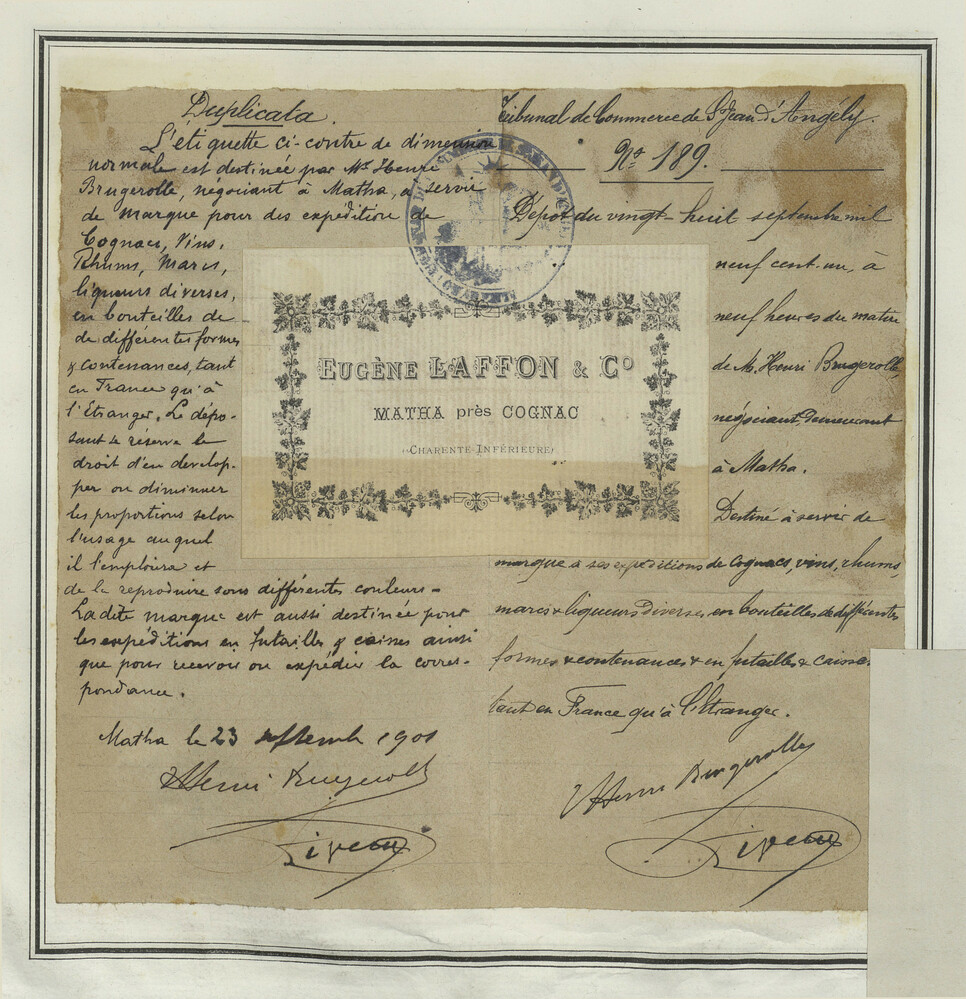 Duplicata.
L'étiquette ci-contre de dimension
normale est destinée par Mr Henri
Brugerolle, négociant à Matha, a servir
de marque pour des expédition de
Cognacs, Vins,
Rhums, Marcs,
liqueurs diverses,
en bouteilles de
de différentes formes
& contenances, tant
en France qu'à
l'Etranger. Le dépo-
sant se réserve le
droit d'en develop-
per ou diminuer
les proportions selon
l'usage auquel
il l'emploiera et
de la reproduire sous différentes couleurs.
La dite marque est aussi destinée pour
les expéditions en futailles & caisses ainsi
que pour recevoir ou expédier la corres-
pondance.
Matha le 23 septembre 1901
Henri Brugerolle
Tribunal de Commerce de St Jean d'Angély.
No 189.
Dépot du vingt-huit septembre mil
neuf cent-un, à
neuf heures du matin
de M. Henri Brugerolle,
négociant, demeurant
à Matha.
Destiné à servir de
marque à ses expéditions de Cognacs, vins, rhums,
marcs & liqueurs diverses, en bouteilles de différentes
formes & contenances & en futailles & caisses
tant en France qu'à l'étranger.
Henri Brugerolle
EUGÈNE LAFFON & Co
MATHA près COGNAC
(CHARENTE-INFÉRIEURE)